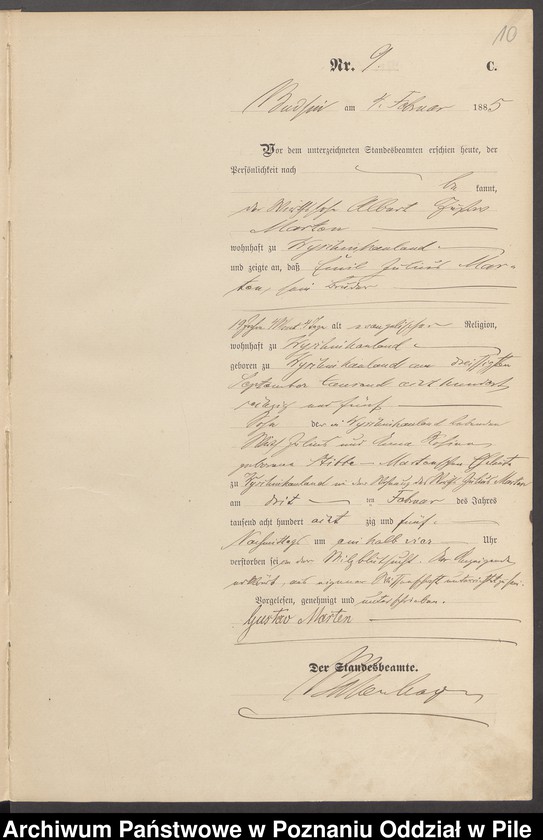 10
Nr. 9 C.
Budsin am 4. Februar 1885
Vor dem unterzeichneten Standesbeamten erschien heute, der
Persönlichkeit nach
be kannt,
der Wirthssohn Albert Gustav
Marten
wohnhaft zu
und zeigte an, daß Emil Julius Mar-
ten, sein Bruder
19 Jahr 4 Monat 4 Tage alt evangelischer Religion,
wohnhaft zu
geboren zu am dreißigsten
September tausend acht hundert
sechszig und fünf
Sohn der in lebenden
Wirth Julius und Rosina
geborene Marten'schen Eheleute
zu in der Wohnung des Wirth Julius Marten
am drit ten Februar des Jahres
tausend acht hundert acht zig und fünf
Nachmittags um ein halb vier Uhr
verstorben sei, an der Der Anzeigende
erklärt, aus eigener Wissenschaft unterrichtet zu sein.
Vorgelesen, genehmigt und unterschrieben.
Gustav Marten
Der Standesbeamte.
Archiwum Państwowe w Poznaniu Oddział w Pile